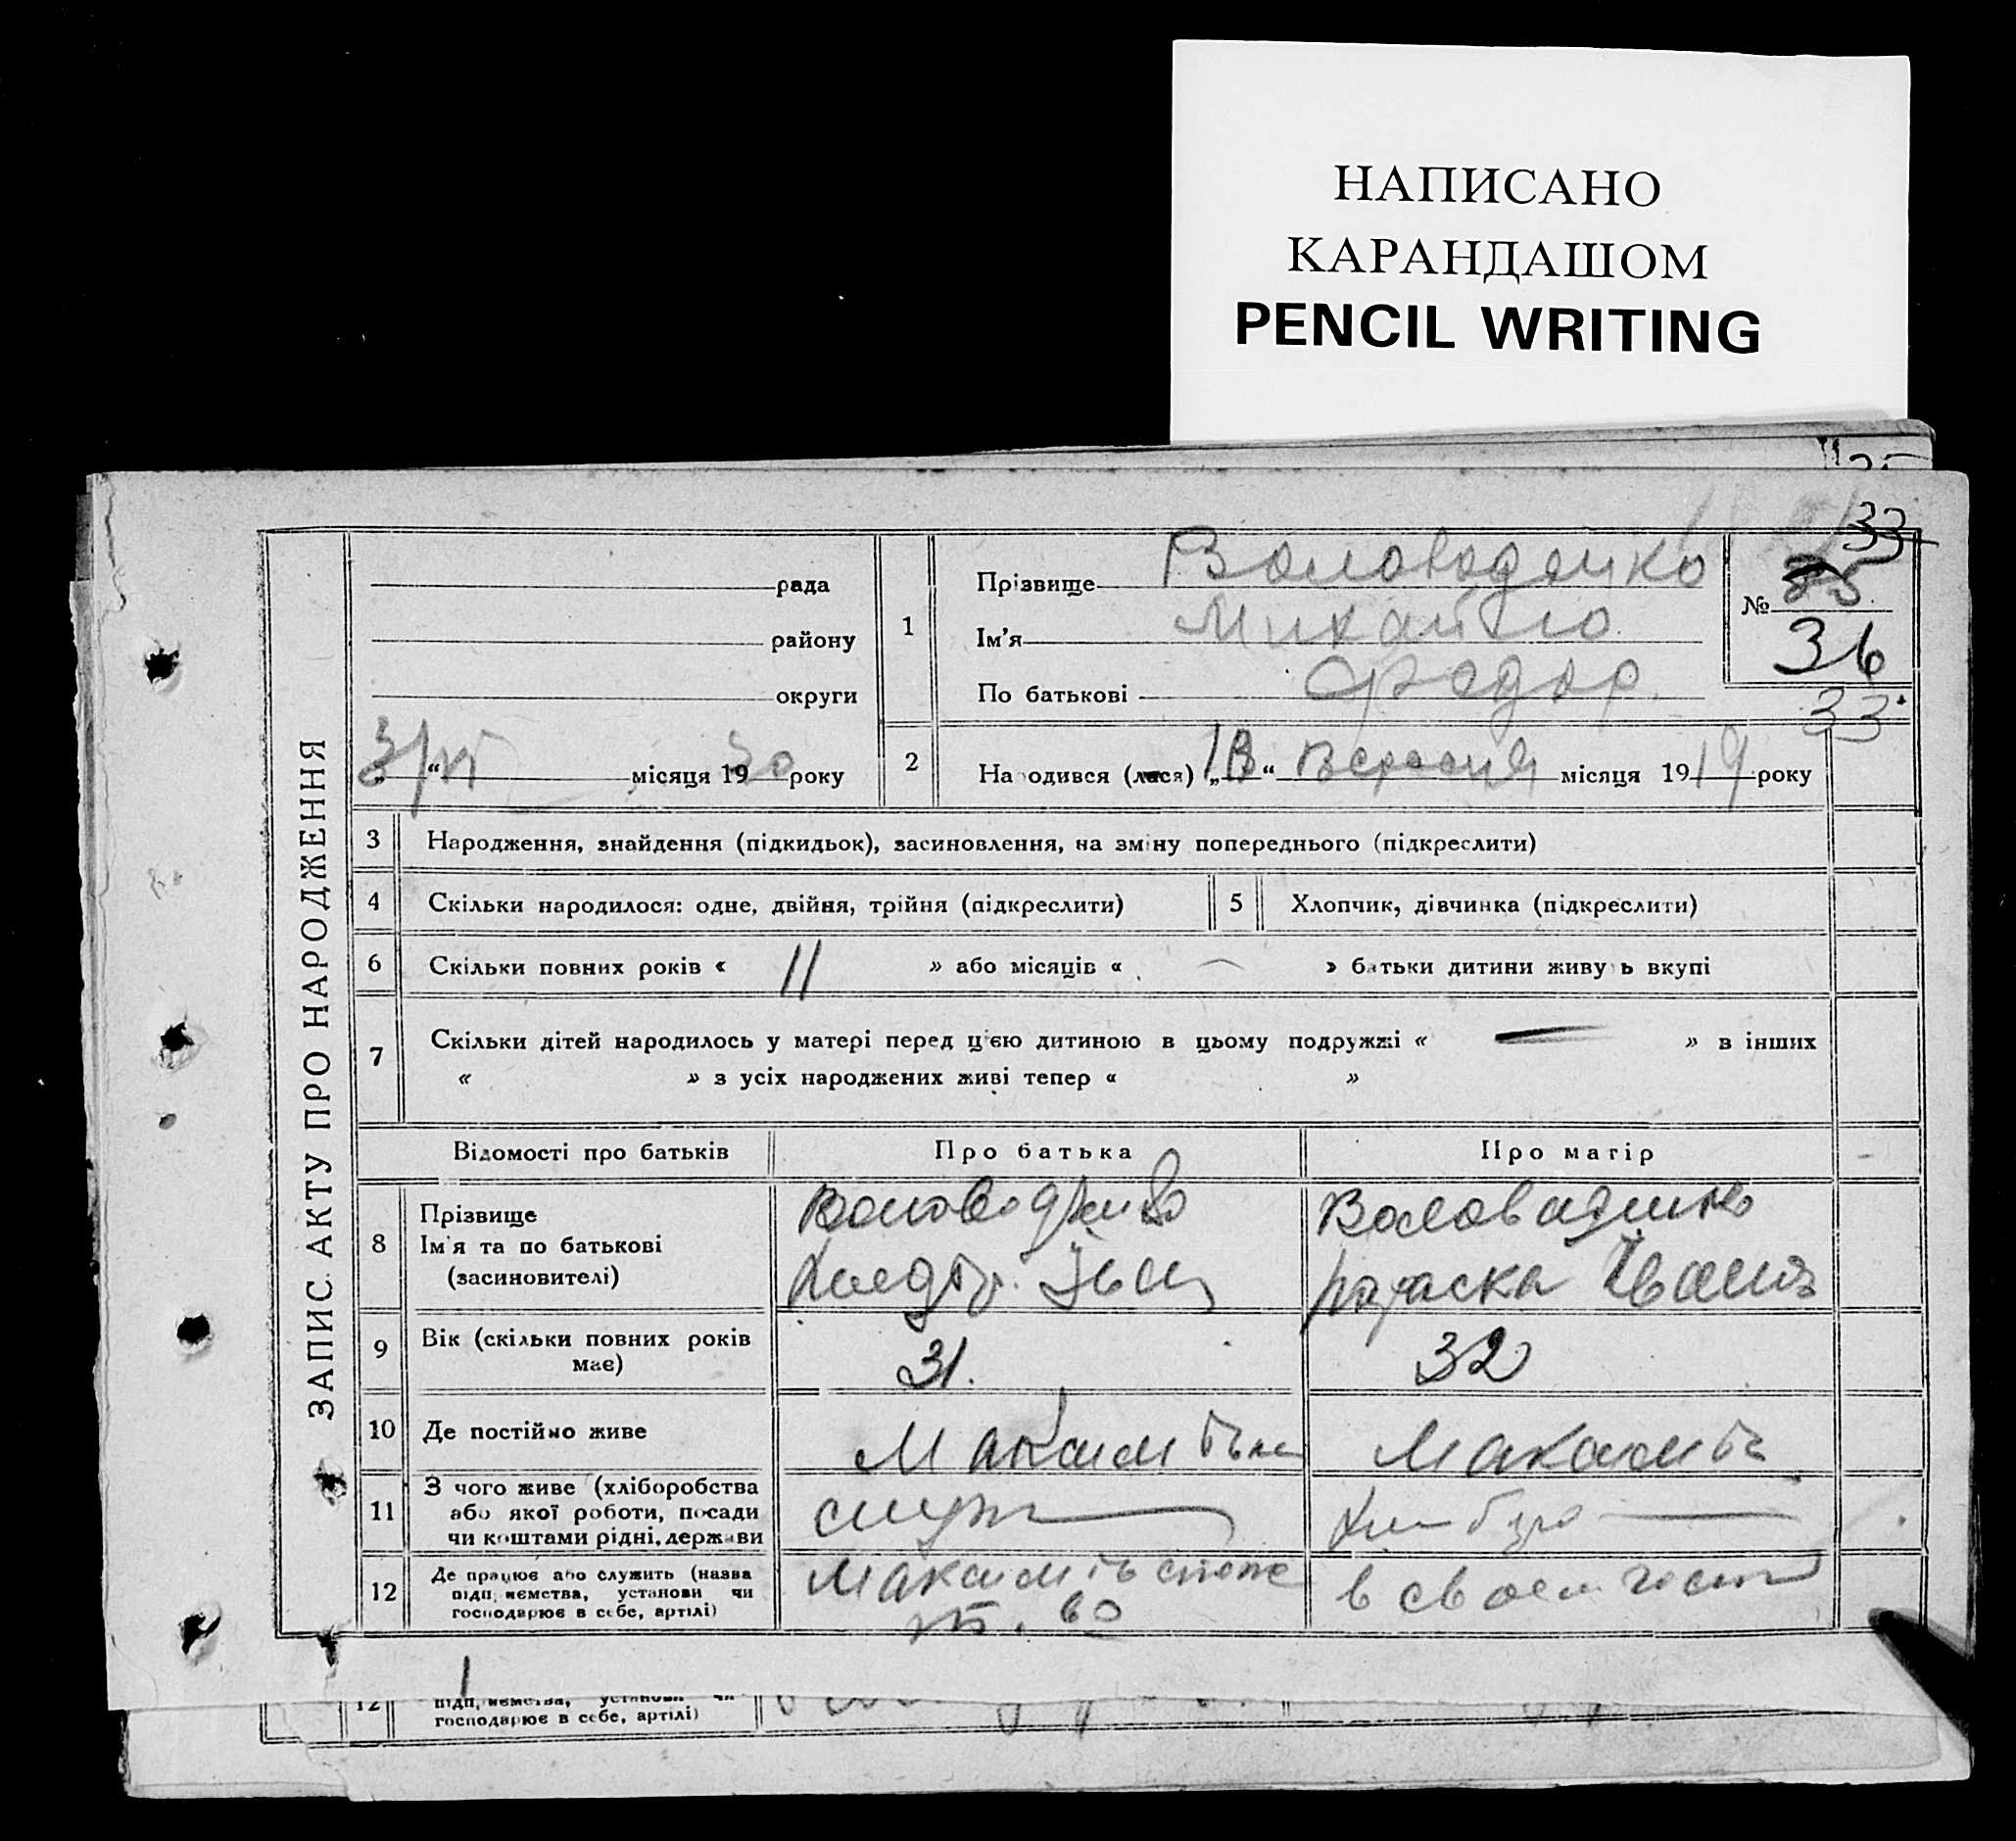 НАПИСАНО
КАРАНДАШОМ
PENCIL WRITING
33
ЗАПИС АКТУ ПРО НАРОДЖЕННЯ
рада
району
округи
3/VI місяця 1930 року
1
Прізвище Воловоденко
Ім'я Михайло
По батькові Федор.
№ 85
36
33
2 Народився (лася) „ “ Вересня місяця 1919 року
3 Народження, знайдення (підкидьок), засиновлення, на зміну попереднього (підкреслити)
4 Скільки народилося: одне, двійня, трійня (підкреслити) 5 Хлопчик, дівчинка (підкреслити)
6 Скільки повних років « 11 » або місяців « — » батьки дитини живуть вкупі
7 Скільки дітей народилось у матері перед цією дитиною в цьому подружжі « — » в інших
« » з усіх народжених живі тепер « »
Відомості про батьків Про батька Про матір
8 Прізвище
Ім'я та по батькові
(засиновителі)
Іван
Параска Іванів
9 Вік (скільки повних років має) 31. 32
10 Де постійно живе
11 З чого живе (хліборобства
або якої роботи, посади
чи коштами рідні, держави
служ
12 Де працює або служить (назва
підприємства, установи чи
господарює в себе, артілі)
в своем госп
1
12 підприємства, установи чи
господарює в себе, артілі)